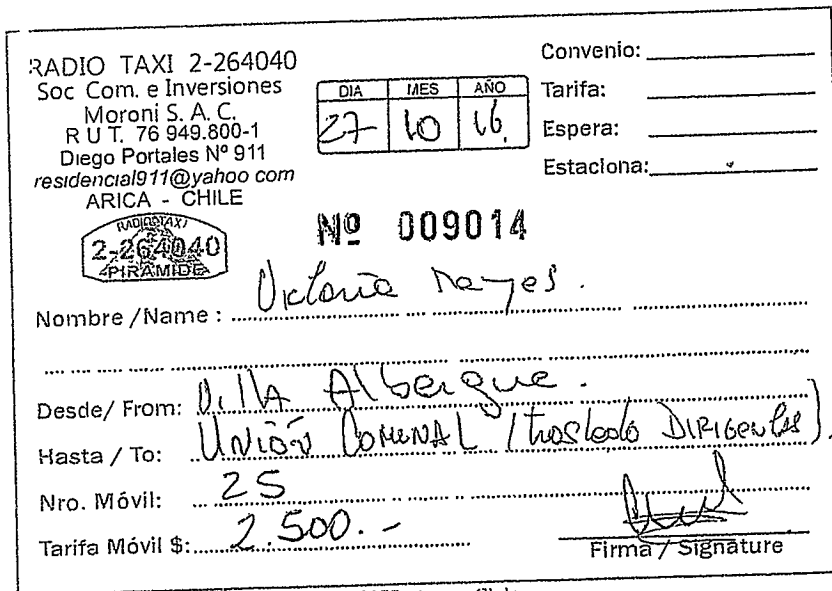 RADIO TAXI 2-264040
Soc Com. e Inversiones
Moroni S. A. C.
R U T. 76 949.800-1
Diego Portales Nº 911
residencial911@yahoo com
ARICA - CHILE
RADIOTAXI
2-264040
PIRAMIDE
DIA MES AÑO
27 10 16
Convenio:
Tarifa:
Espera:
Estaciona:
Nº 009014
Nombre / Name : Victoria Reyes.
Desde/ From: Villa Albergue.
Hasta / To: Unión Comunal (traslado Dirigentes).
Nro. Móvil: 25
Tarifa Móvil $: 2.500.-
Firma / Signature